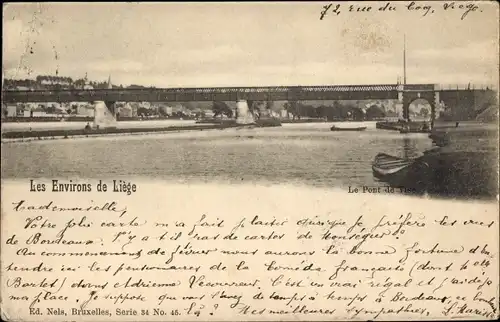 72, rue du Coq, Liège.
Les Environs de Liège
Le Pont de Visé
Mademoiselle,
Votre jolie carte m'a fait plaisir quoique je préfère les vues
de Bordeaux. N'y a t'il pas de cartes de Monsegur?
Au commencement de février nous aurons la bonne fortune d'en-
tendre ici les pensionnaires de la Comédie française (dont M
Bartet) dans et Adrienne Lecouvreur. C'est un vrai régal et j'ai
ma place. Je suppose que vous avez de temps à temps à Bordeaux
Mes meilleures sympathies,
Ed. Nels, Bruxelles, Serie 34 No. 45.